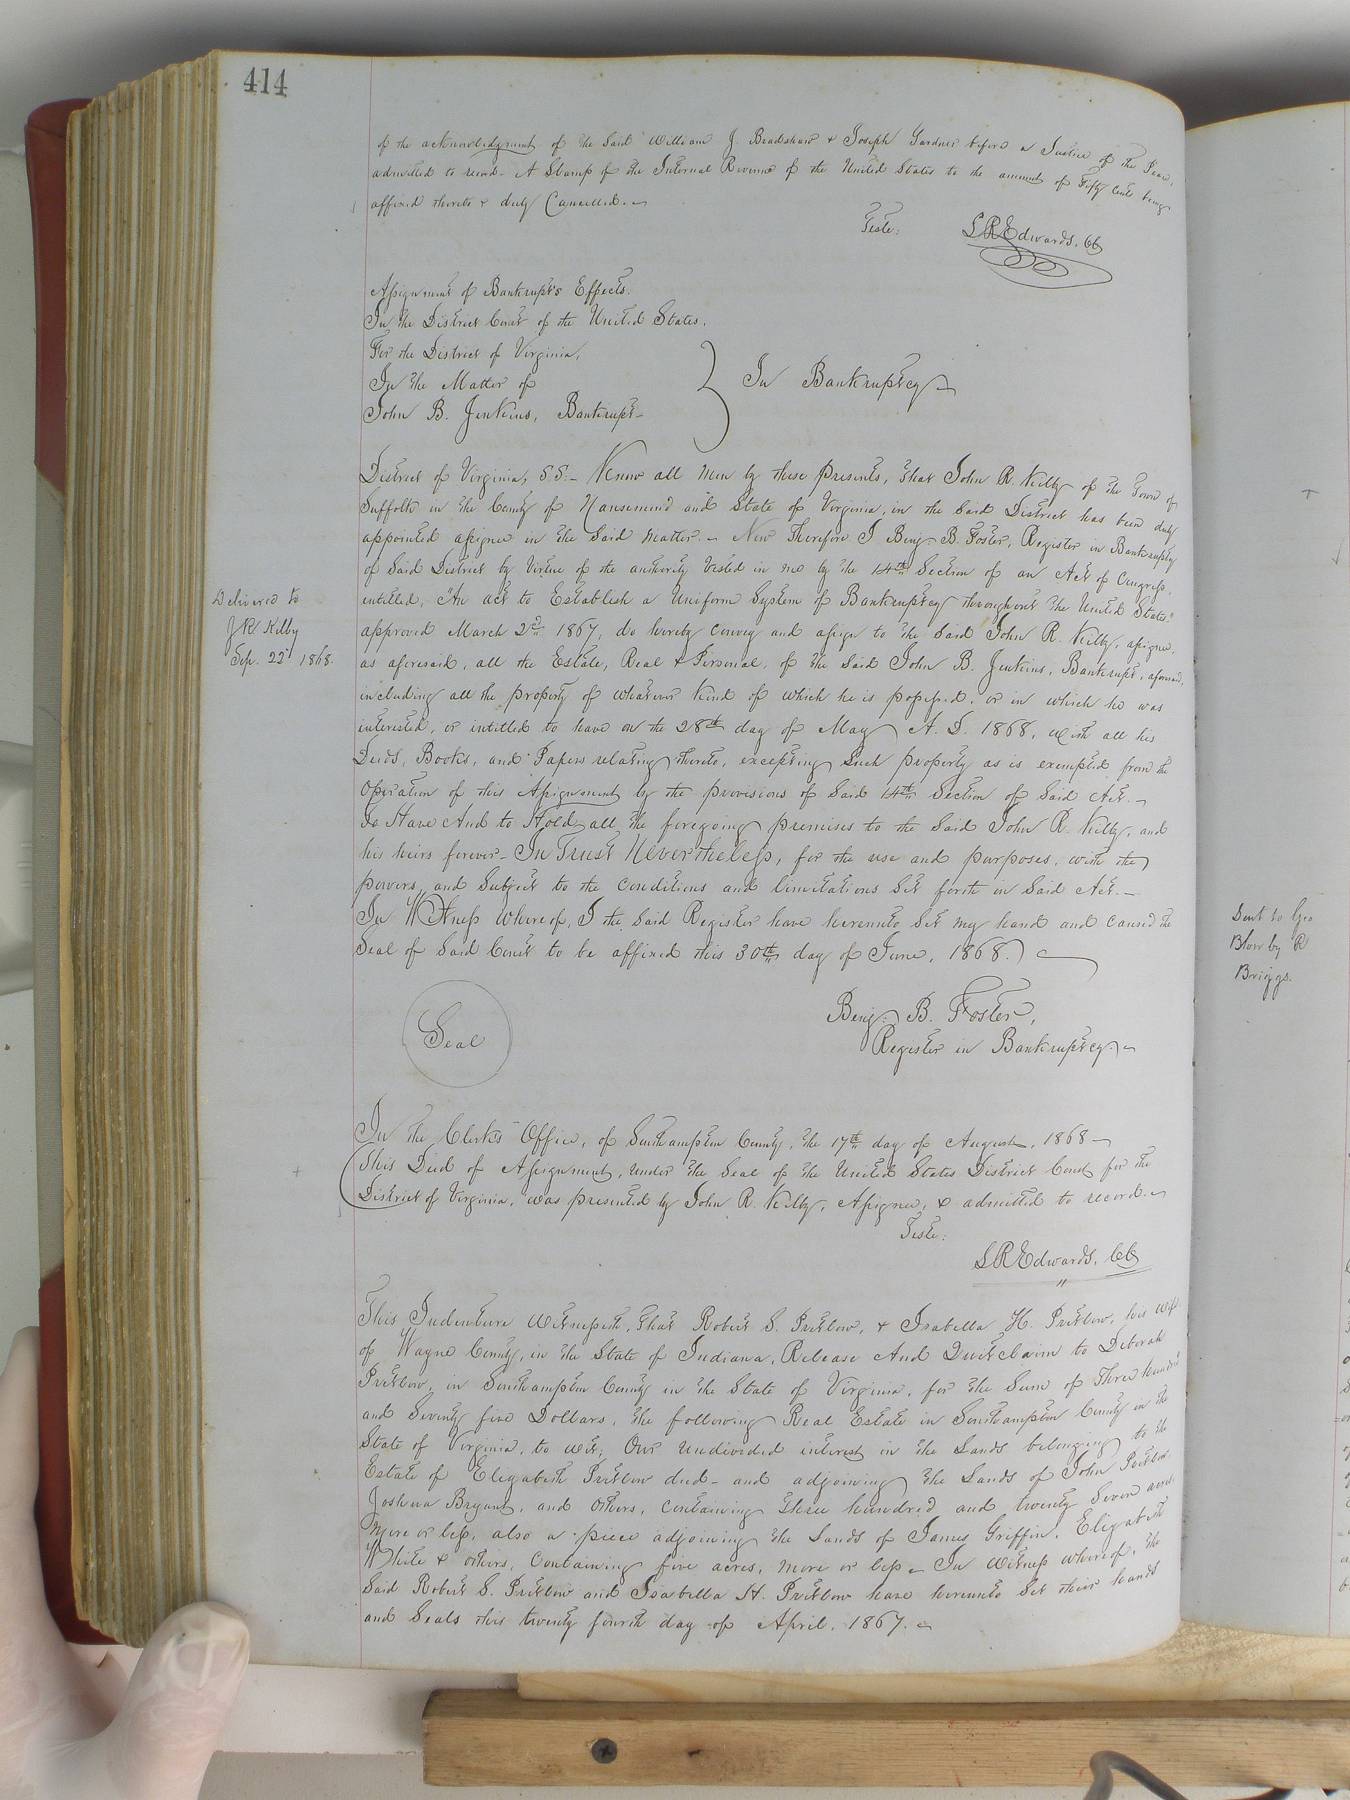 414
of the acknowledgment of the said William J. Bradshaw & Joseph Gardner before a Justice of the Peace,
admitted to record. A Stamp of the Internal Revenue of the United States to the amount of Fifty Cents being
affixed thereto & duly Cancelled.
Teste:
L R Edwards, CC
Assignment of Bankrupt's Effects.
In the District Court of the United States,
For the District of Virginia,
In the Matter of
John B. Jenkins, Bankrupt
In Bankruptcy
District of Virginia, S.S. Know all Men by these Presents, that John R. Kilby of the Town of
Suffolk in the County of Nansemond and State of Virginia, in the Said District has been duly
appointed assignee in the Said matter. Now Therefore I Benj. B. Foster, Register in Bankruptcy
of Said District by Virtue of the authority Vested in me by the 14th Section of an Act of Congress,
entitled, "An act to Establish a Uniform System of Bankruptcy throughout the United States,"
approved March 2nd 1867, do hereby convey and assign to the Said John R. Kilby, assignee,
as aforesaid, all the Estate, Real & Personal, of the Said John B. Jenkins, Bankrupt, aforesaid,
including all the property of whatever kind of which he is possessed, or in which he was
interested, or intitled to have on the 28th day of May A. D. 1868, with all his
Deeds, Books, and Papers relating thereto, excepting Such property as is exempted from the
Operation of this Assignment by the provisions of Said 14th Section of Said Act.
To Have And to Hold all the foregoing premises to the Said John R. Kilby, and
his heirs forever - In Trust Nevertheless, for the use and purposes, with the
powers, and Subject to the conditions and limitations Set forth in Said Act.
In Witness Whereof, I the Said Register have hereunto Set my hand and caused the
Seal of Said Court to be affixed this 30th day of June, 1868.
Delivered to
J R Kilby
Sep. 22d 1868.
Seal
Benj. B. Foster,
Register in Bankruptcy.
In the Clerks Office, of Southampton County, the 17th day of August, 1868
This Deed of Assignment, under the Seal of the United States District Court for the
District of Virginia, was presented by John R. Kilby, Assignee, & admitted to record.
Teste:
L R Edwards, CC
This Indenture Witnesseth, that Robert S. Pretlow, & Isabella H. Pretlow, his wife
of Wayne County, in the State of Indiana, Release And Quit claim to Deborah
Pretlow, in Southampton County in the State of Virginia, for the Sum of Three hundred
and Seventy five Dollars, the following Real Estate in Southampton County in the
State of Virginia, to wit; Our undivided interest in the Lands belonging to the
Estate of Elizabeth Pretlow decd - and adjoining the Lands of John Pretlow
Joshua Bryant, and others, containing three hundred and twenty Seven acres
More or less, also a piece adjoining the Lands of James Griffin, Elizabeth
White & others, Containing five acres, more or less. In witness whereof, the
Said Robert S. Pretlow and Isabella H. Pretlow have hereunto Set their hands
and Seals this twenty fourth day of April, 1867.
Sent to Geo
Blow by R
Briggs.